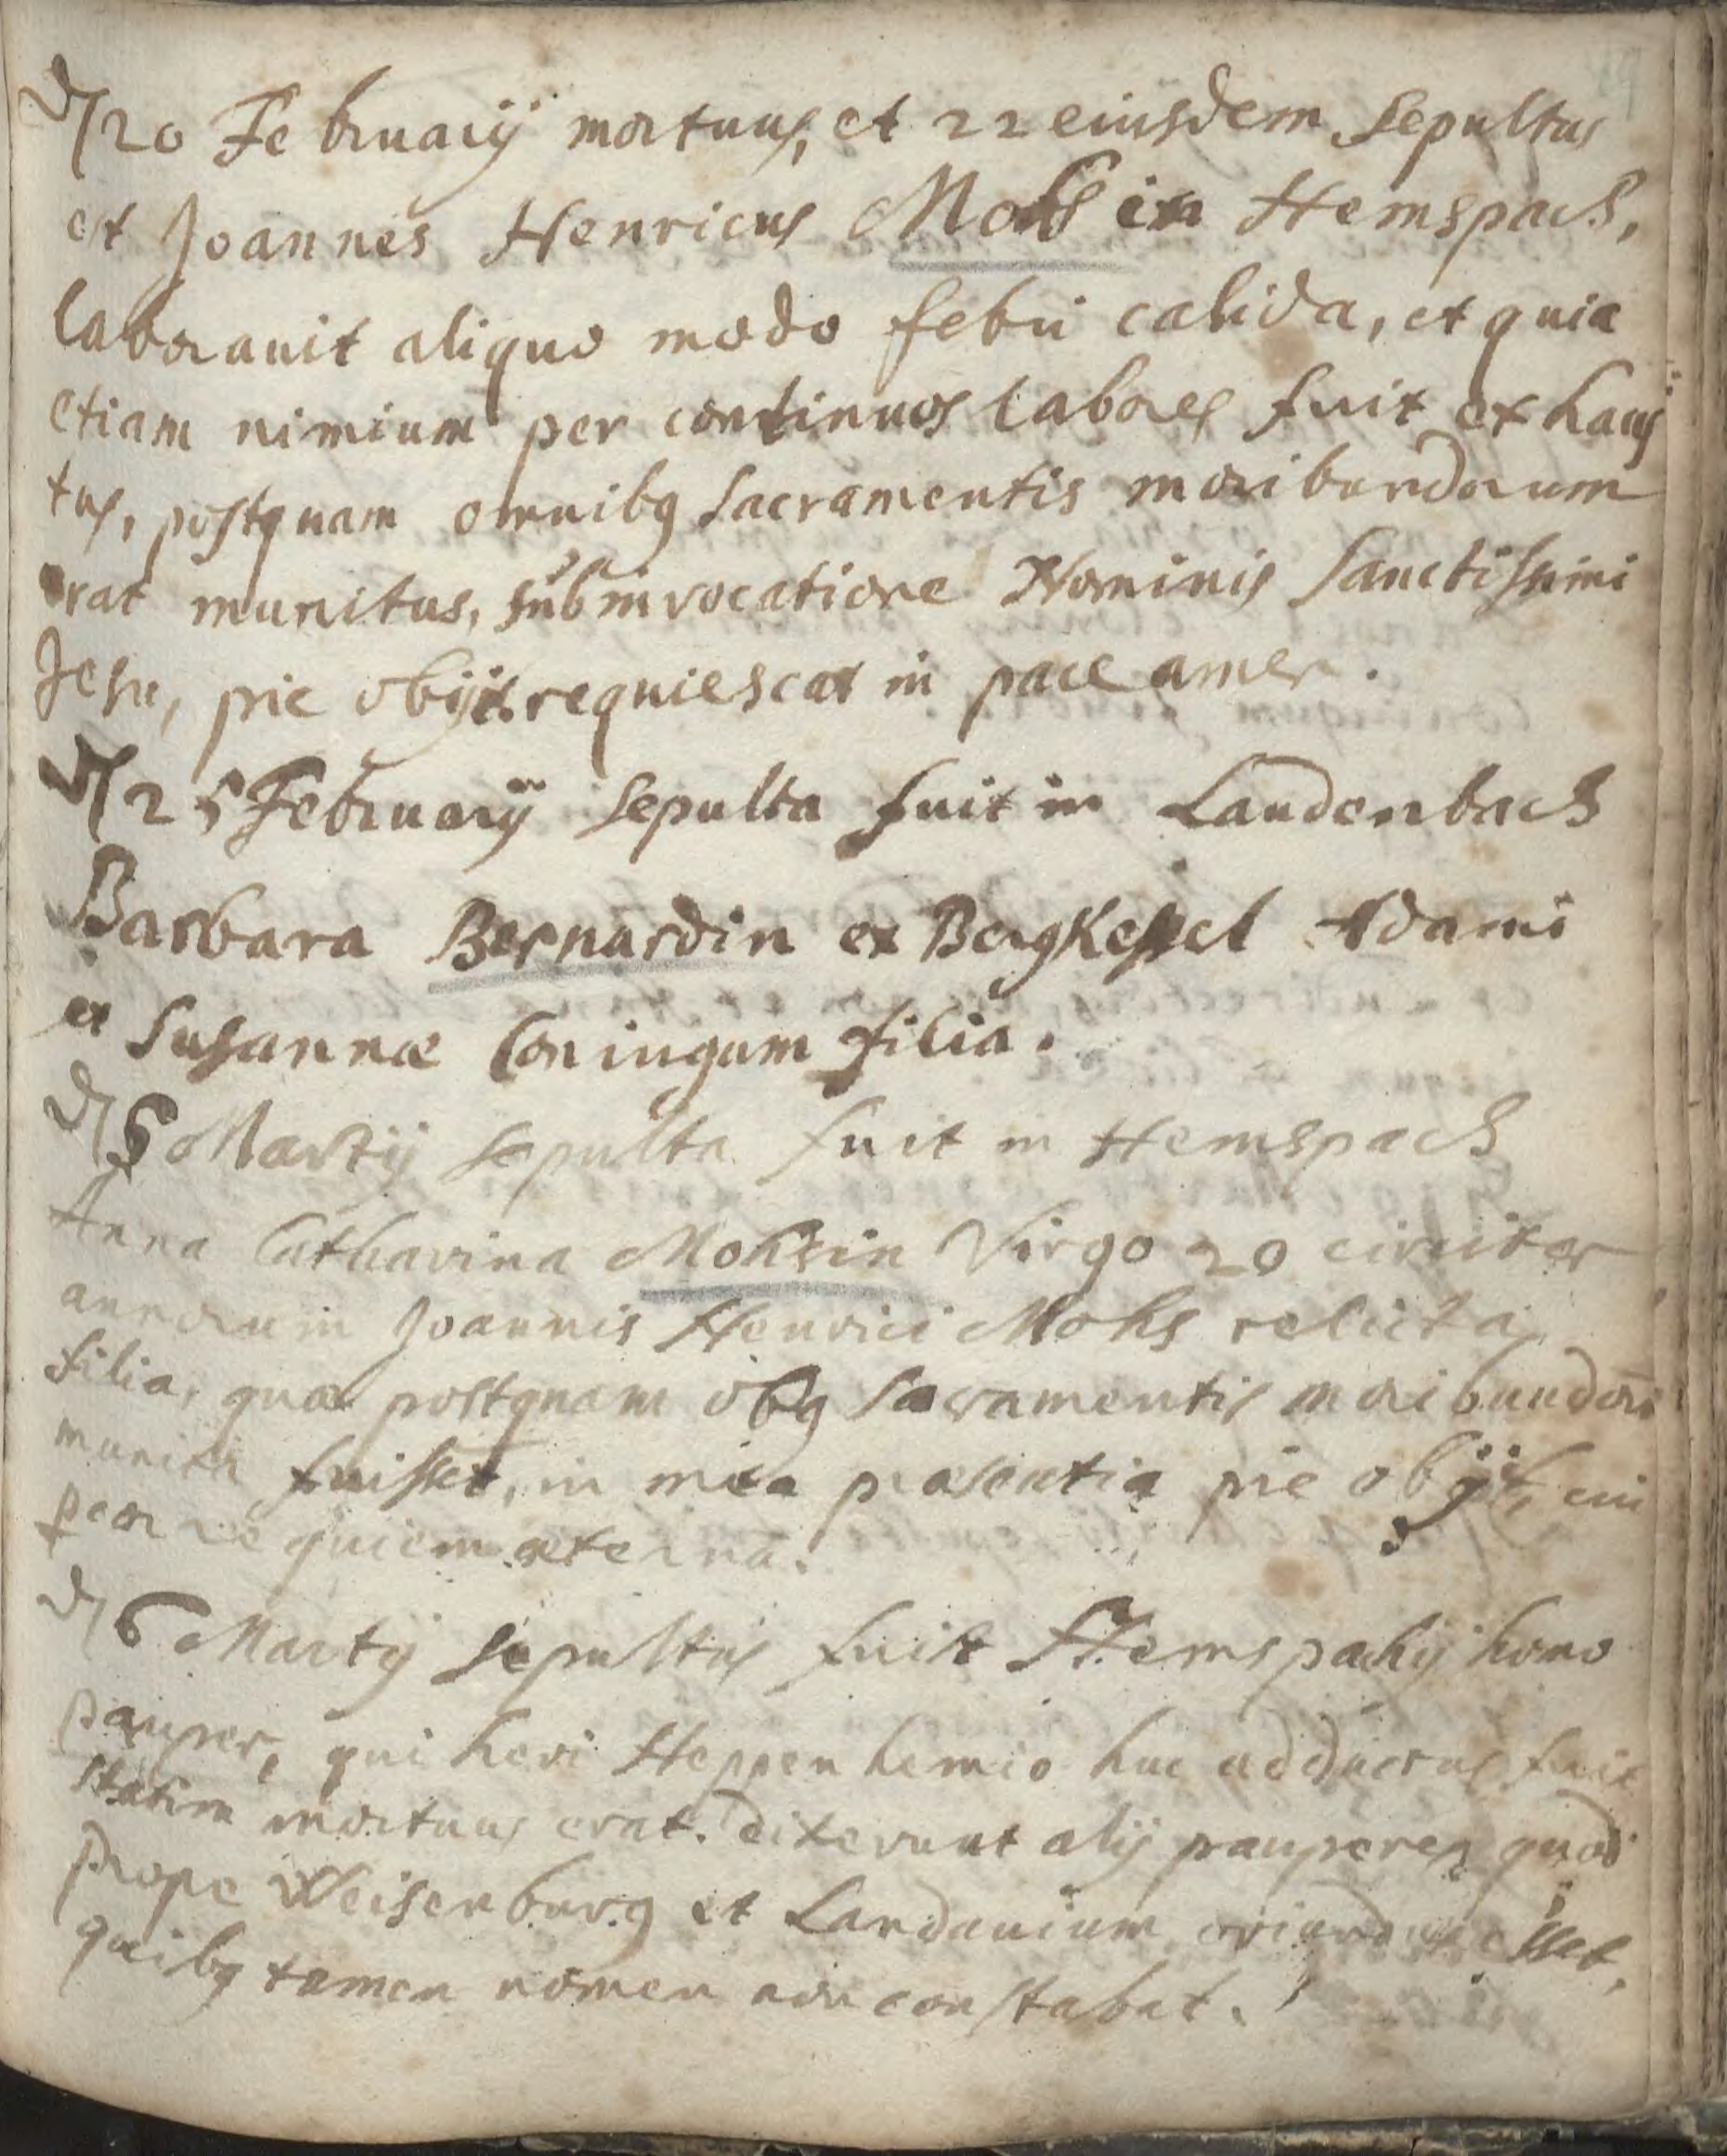 d 20 Februarij mortuus, et 22 eiusdem sepultus
est Joannes Henricus Mohs in Hemspach,
laborauit aliquo modo febri calida, et quia
etiam nimium per continuos labores fuit exhaus
tus, postquam omnibq sacramentis moribundorum
erat munitus, sub invocatione Nominis Sanctissimi
Jesu, pie obijt. requiescat in pace amen.
d 25 Februarij sepulta fuit in Laudenbach
Barbara Bernardin ex BergKessel Adami
et Susannæ Coniugum filia.
d 5 Martij sepulta fuit in Hemspach
Anna Catharina Mohsin Virgo 20 circiter
annorum Joannis Henrici Mohs relicta
filia, quæ postquam oibq sacramentis moribundorū
munita fuisset, in mea præsentia pie obijt, cui
precor requiem æternā.
d 6 Martij sepultus fuit Hemspachij homo
pauper, qui heri Heppenhemio huc adductus fuit
statim mortuus erat. dixerunt alij pauperes quod
prope Weisenburg et Landauium oriundus esset,
quibq tamen nomen non constabat.